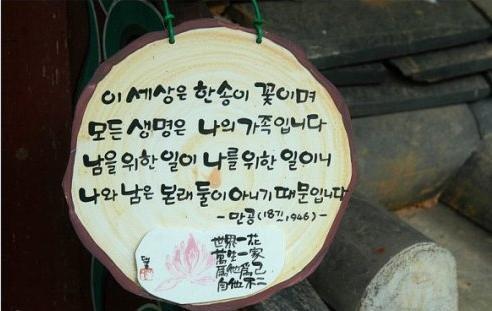 이 세상은 한송이 꽃이며
모든 생명은 나의 가족입니다
남을 위한 일이 나를 위한 일이니
나와 남은 본래 둘이 아니기 때문입니다
-만공(1871, 1946)-
世界一花
萬生一家
爲他爲己
自他不二